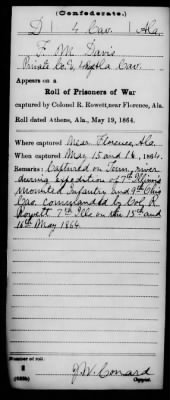 (Confederate.)
D 4 Cav. Ala.
F. M. Davis
Private Co. D, 4 Ala Cav.
Appears on a
Roll of Prisoners of War
captured by Colonel R. Rowett, near Florence, Ala.
Roll dated Athens, Ala., May 19, 1864.
Where captured Near Florence, Ala.
When captured May 15 and 16, 1864.
Remarks: Captured on Tenn. river
during expedition of 7th Illinois
mounted Infantry and 9th Ohio
Cav. commanded by Col. R.
Rowett 7th Ills on the 15th and
16th May 1864
Number of roll:
J. W. Conard
Copyist.